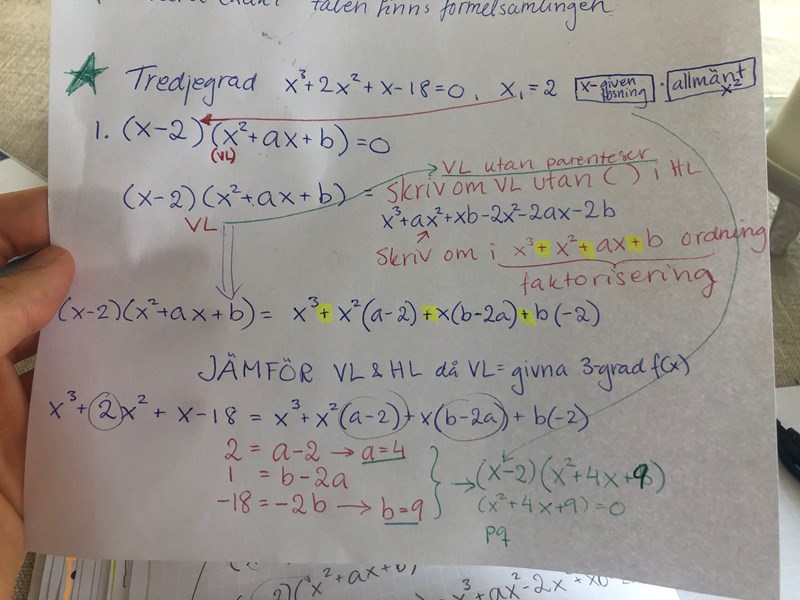 talen finns formelsamlingen
Tredjegrad x³+2x²+x-18=0, x₁=2 x-given lösning · allmänt x²
1. (x-2)(x²+ax+b)=0
(VL)
VL utan parenteser
(x-2)(x²+ax+b) = Skriv om VL utan () i HL
VL
x³+ax²+xb-2x²-2ax-2b
Skriv om i x³+x²+ax+b ordning
faktorisering
(x-2)(x²+ax+b)= x³+x²(a-2)+x(b-2a)+b(-2)
JÄMFÖR VL & HL då VL= givna 3-grad f(x)
x³+2x²+x-18 = x³+x²(a-2)+x(b-2a)+b(-2)
2 = a-2 → a=4
1 = b-2a
-18=-2b → b=9
→(x-2)(x²+4x+9)
(x²+4x+9)=0
pq
2)(x²+ax+b)
x³+ax²-2x+xb